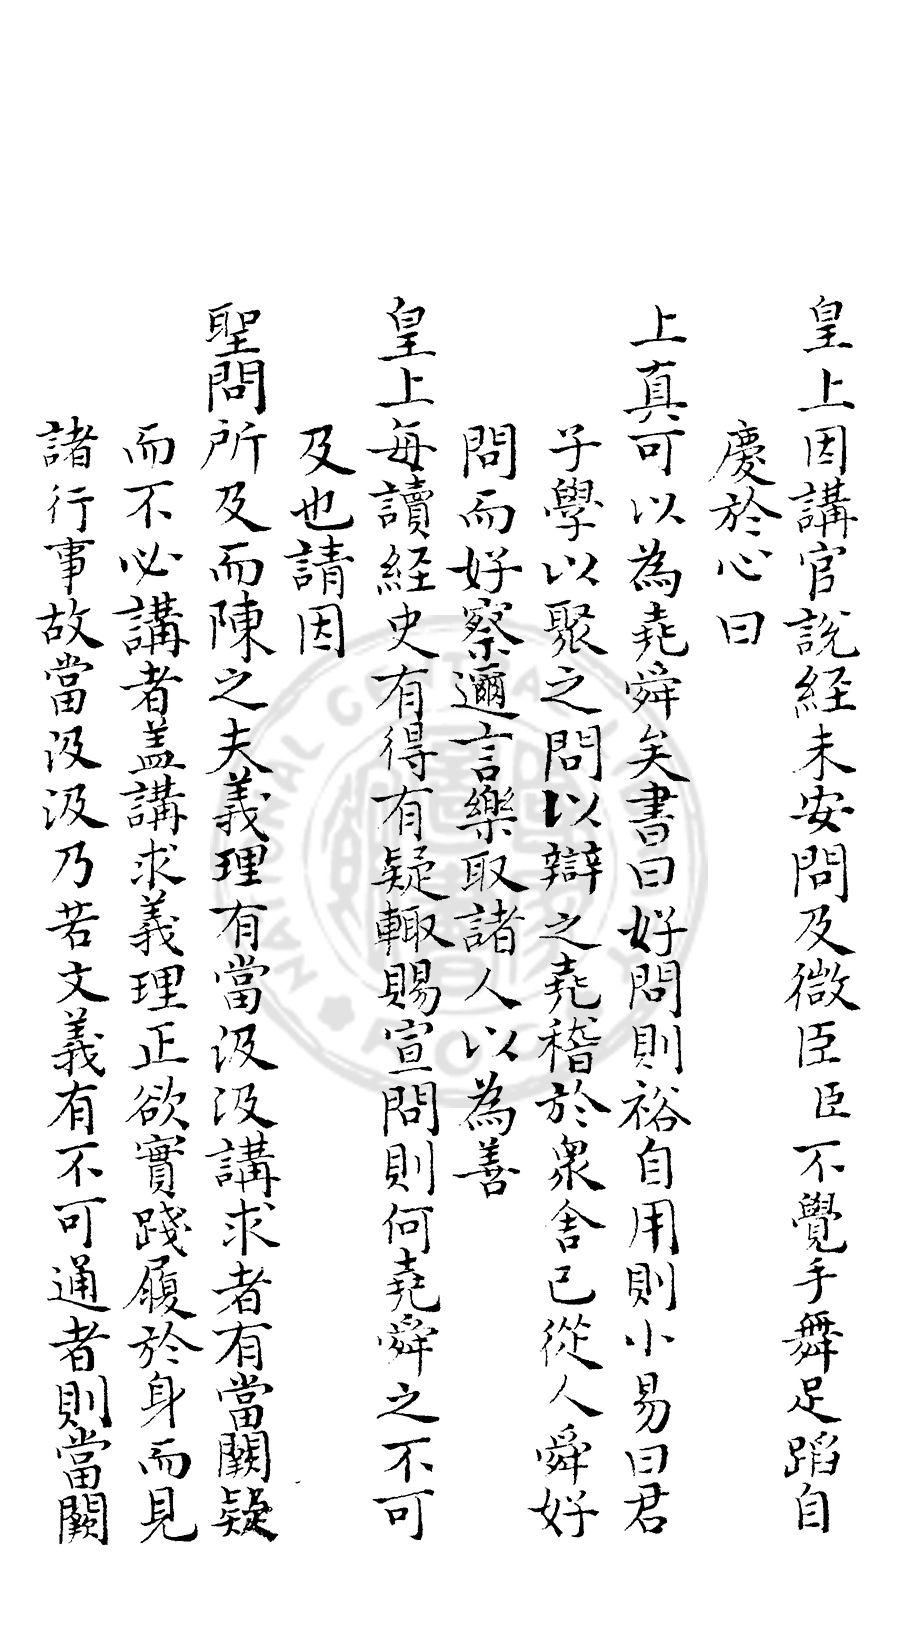 皇上因講官說經未安問及微臣臣不覺手舞足蹈自
慶於心曰
上真可以為堯舜矣書曰好問則裕自用則小易曰君
子學以聚之問以辯之堯稽於衆舍已從人舜好
問而好察邇言樂取諸人以為善
皇上每讀經史有得有疑輙賜宣問則何堯舜之不可
及也請因
聖問所及而陳之夫義理有當汲汲講求者有當闕疑
而不必講者盖講求義理正欲實踐履於身而見
諸行事故當汲汲乃若文義有不可通者則當闕
NATIONAL CENTRAL LIBRARY